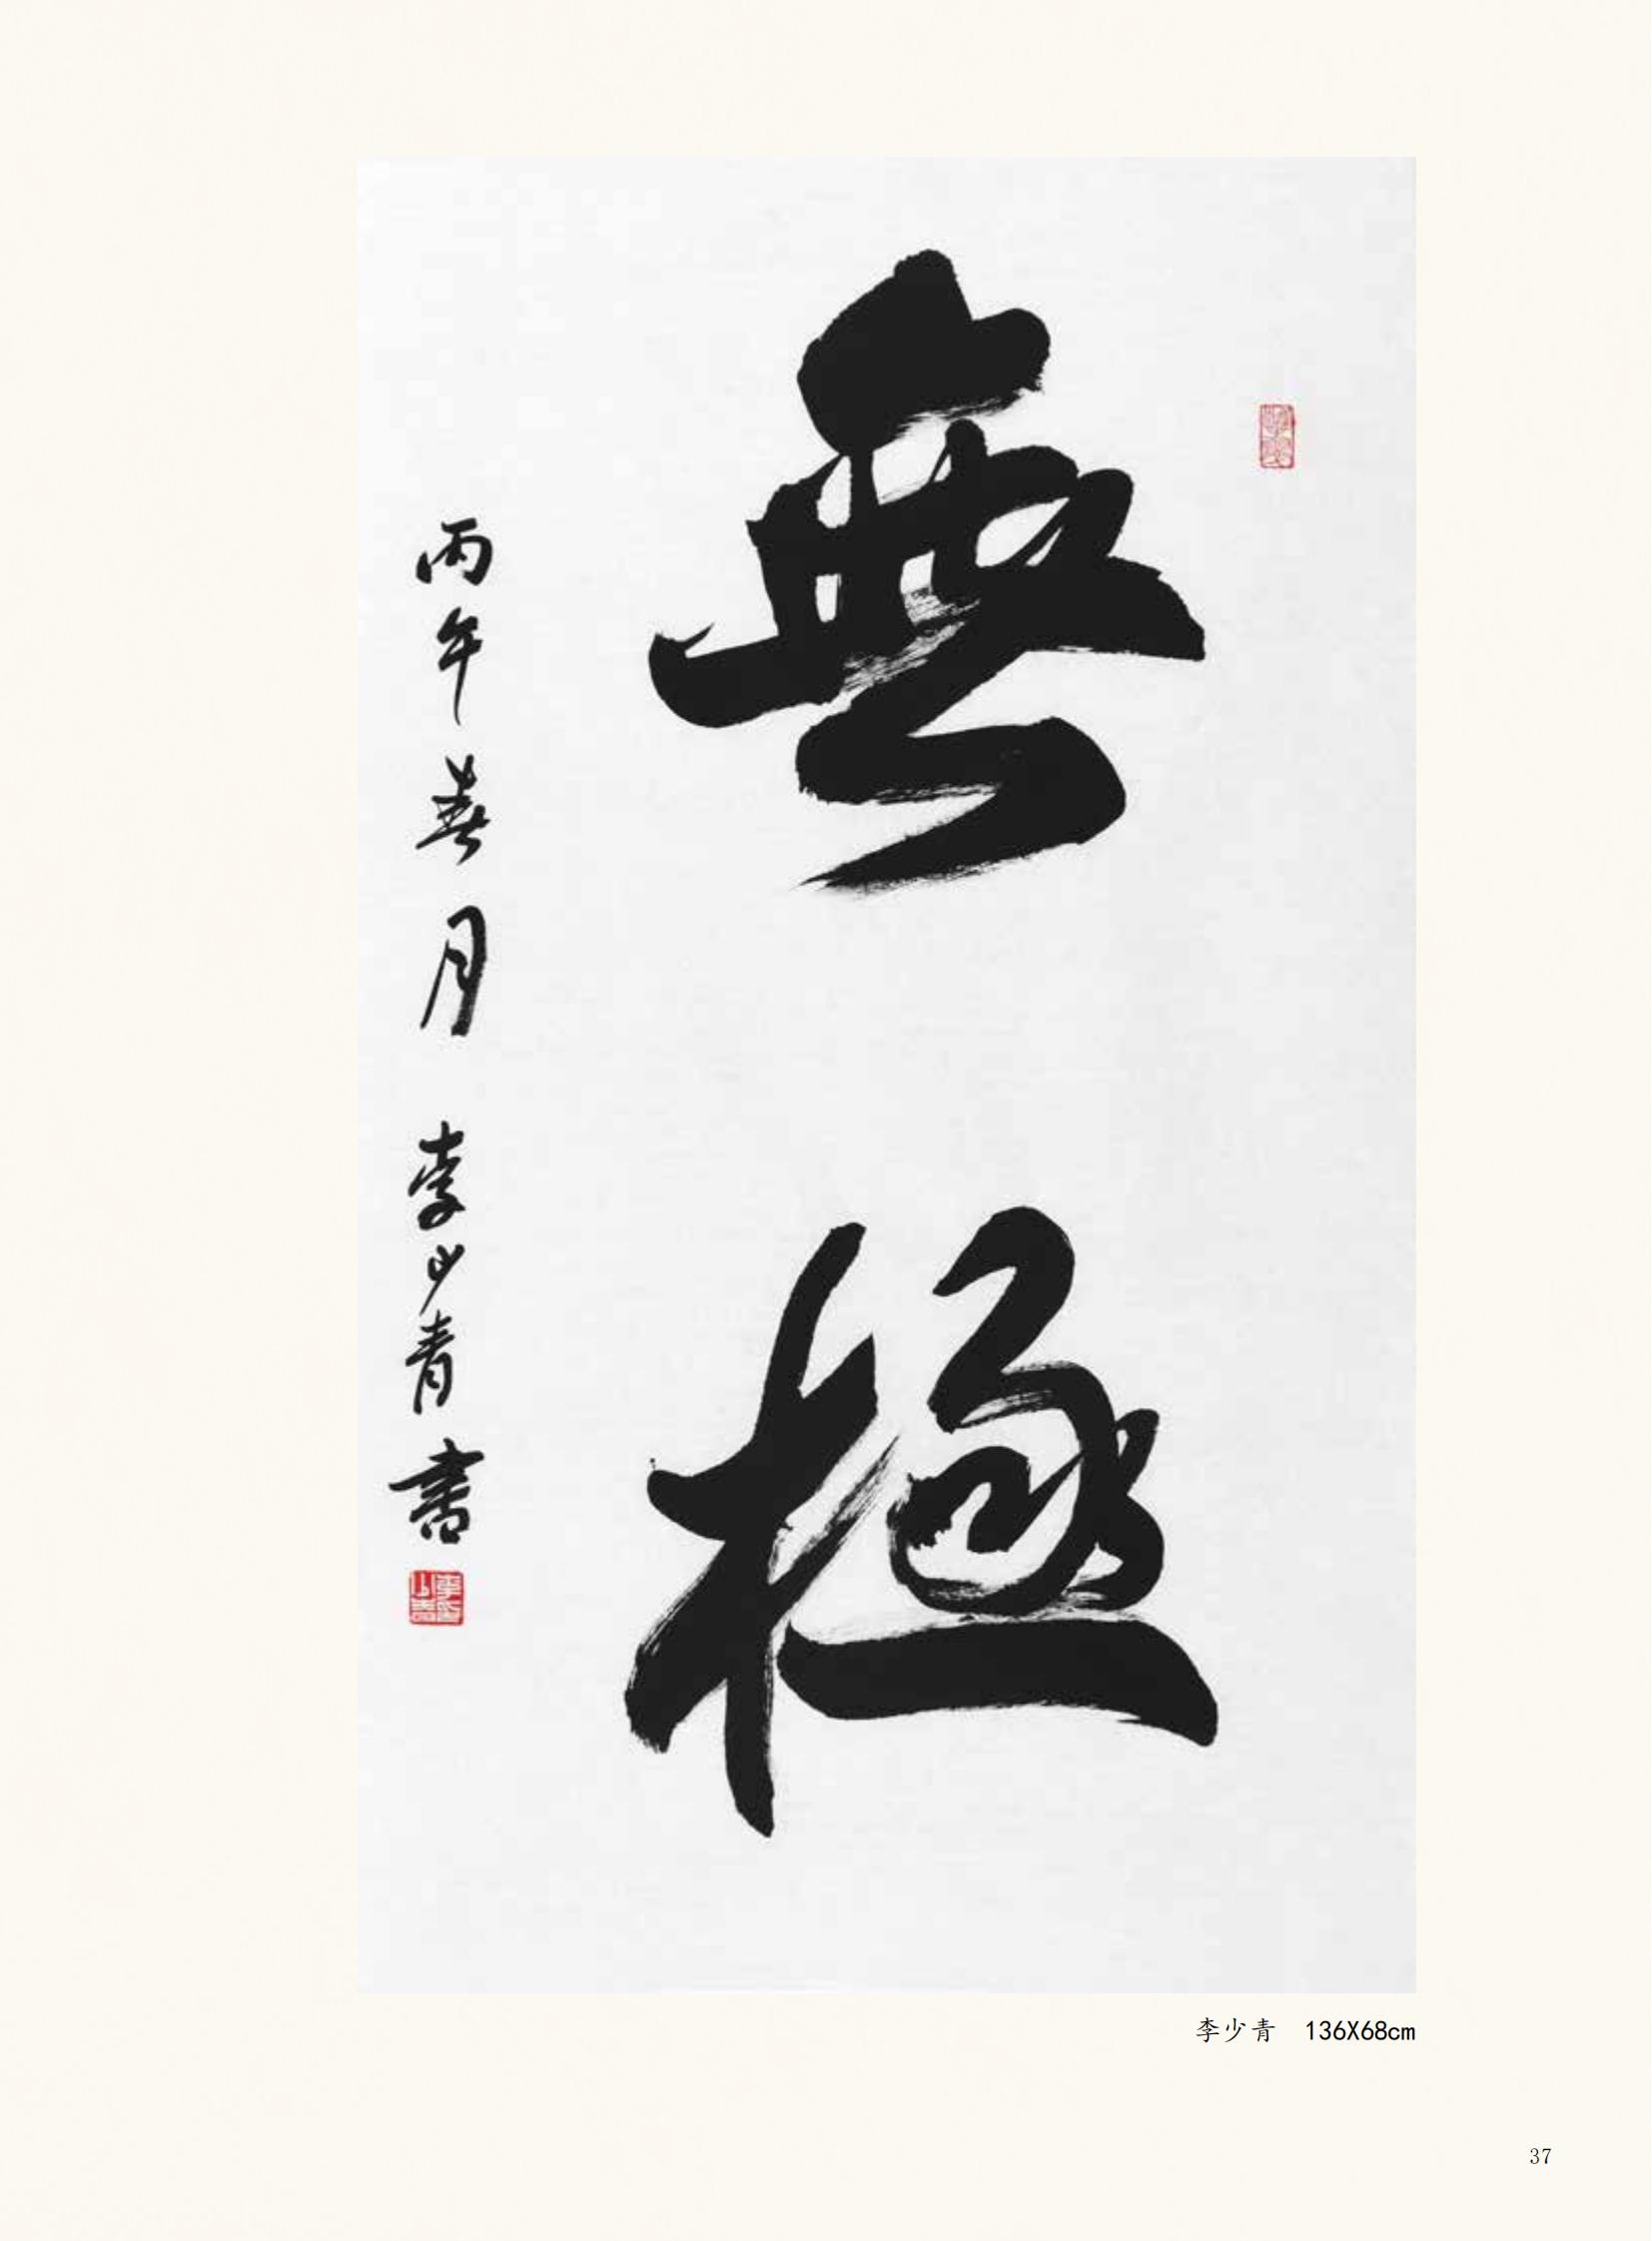 無極
丙午春月 李少青書
李少青 136X68cm
37